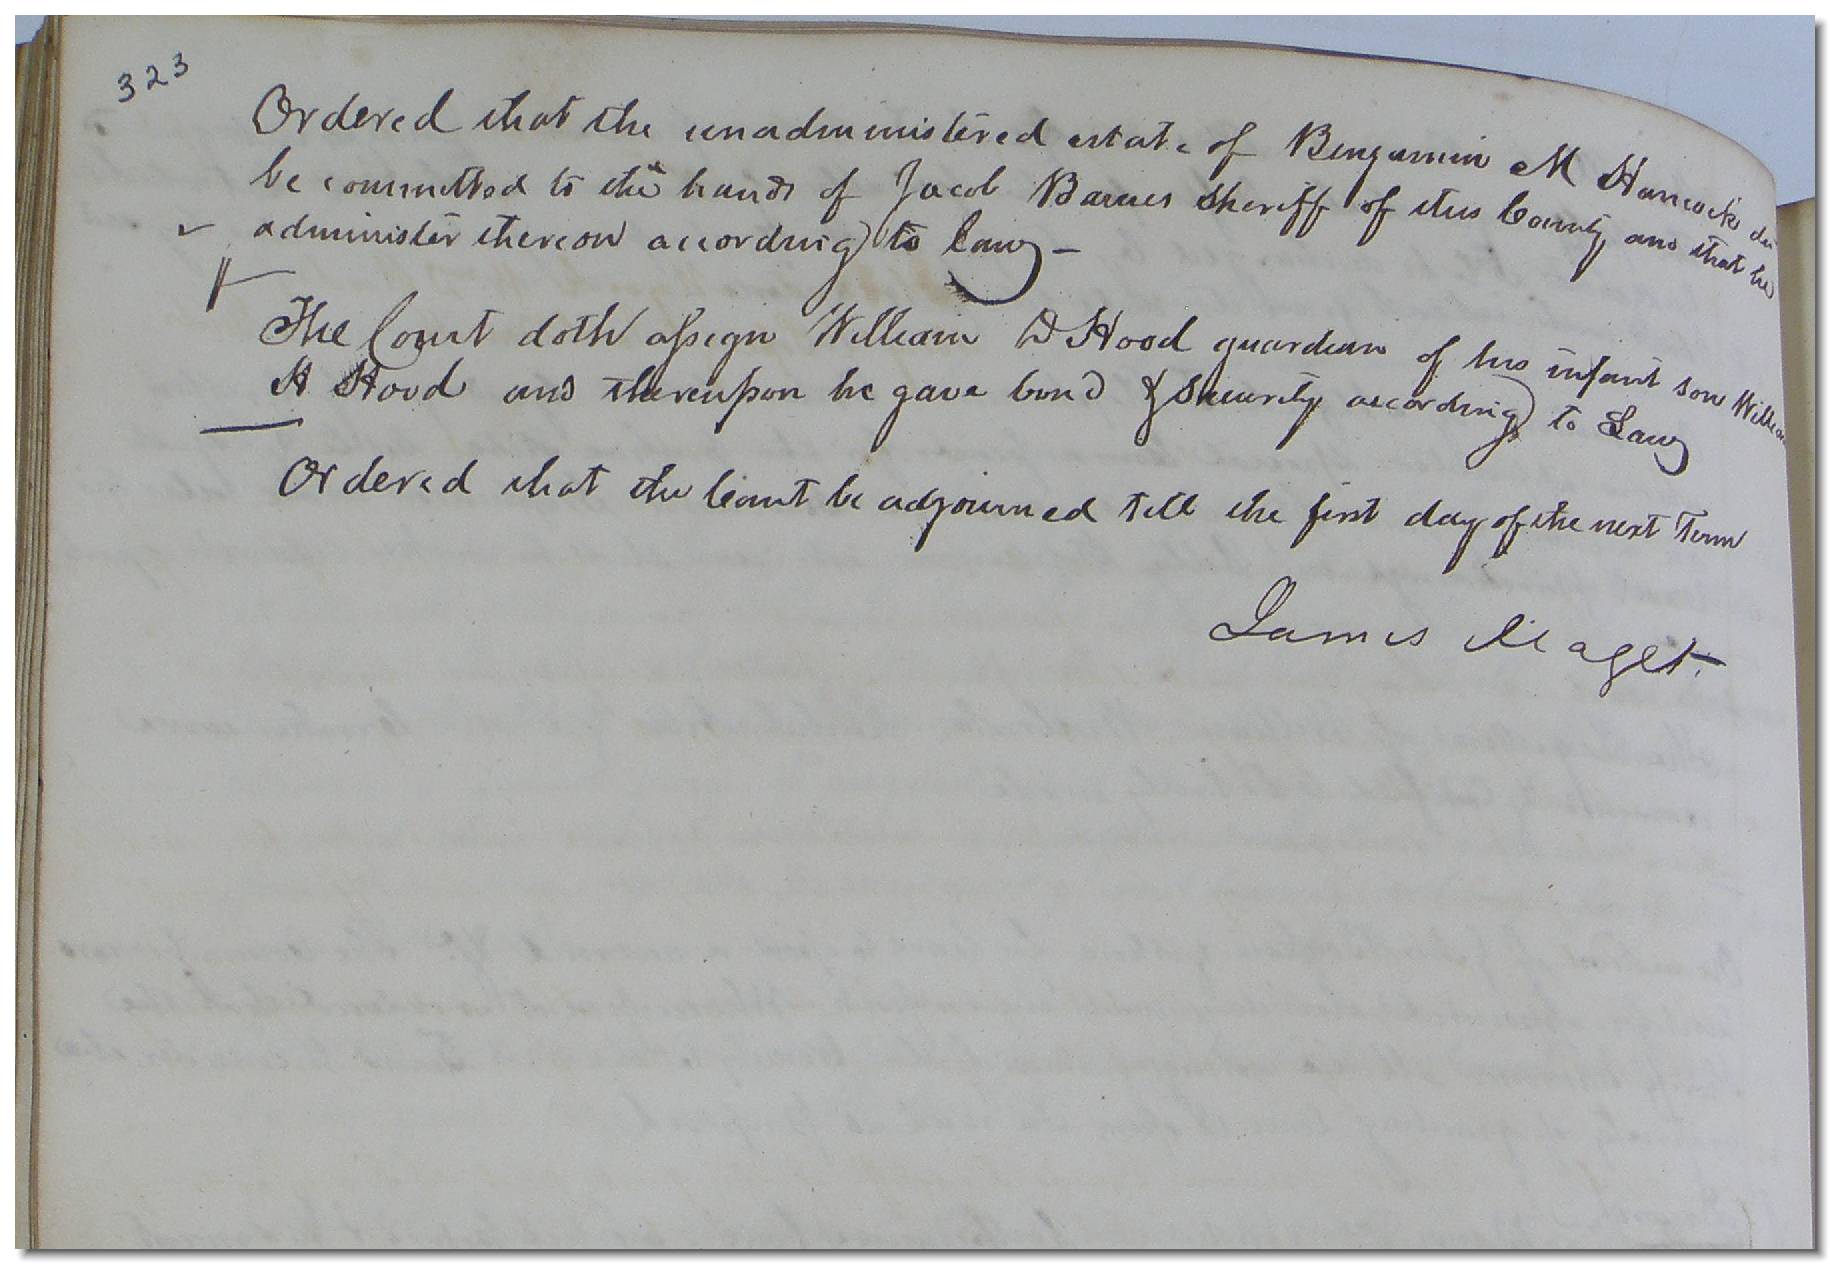 323
Ordered that the unadministered estate of Benjamin M Hancocks
be committed to the hands of Jacob Barnes Sheriff of this County and that he
administer thereon according to Law –
The Court doth assign William D Hood guardian of his infant son William
H Hood and thereupon he gave bond & Security according to Law
Ordered that the Court be adjourned till the first day of the next Term
James Maget.